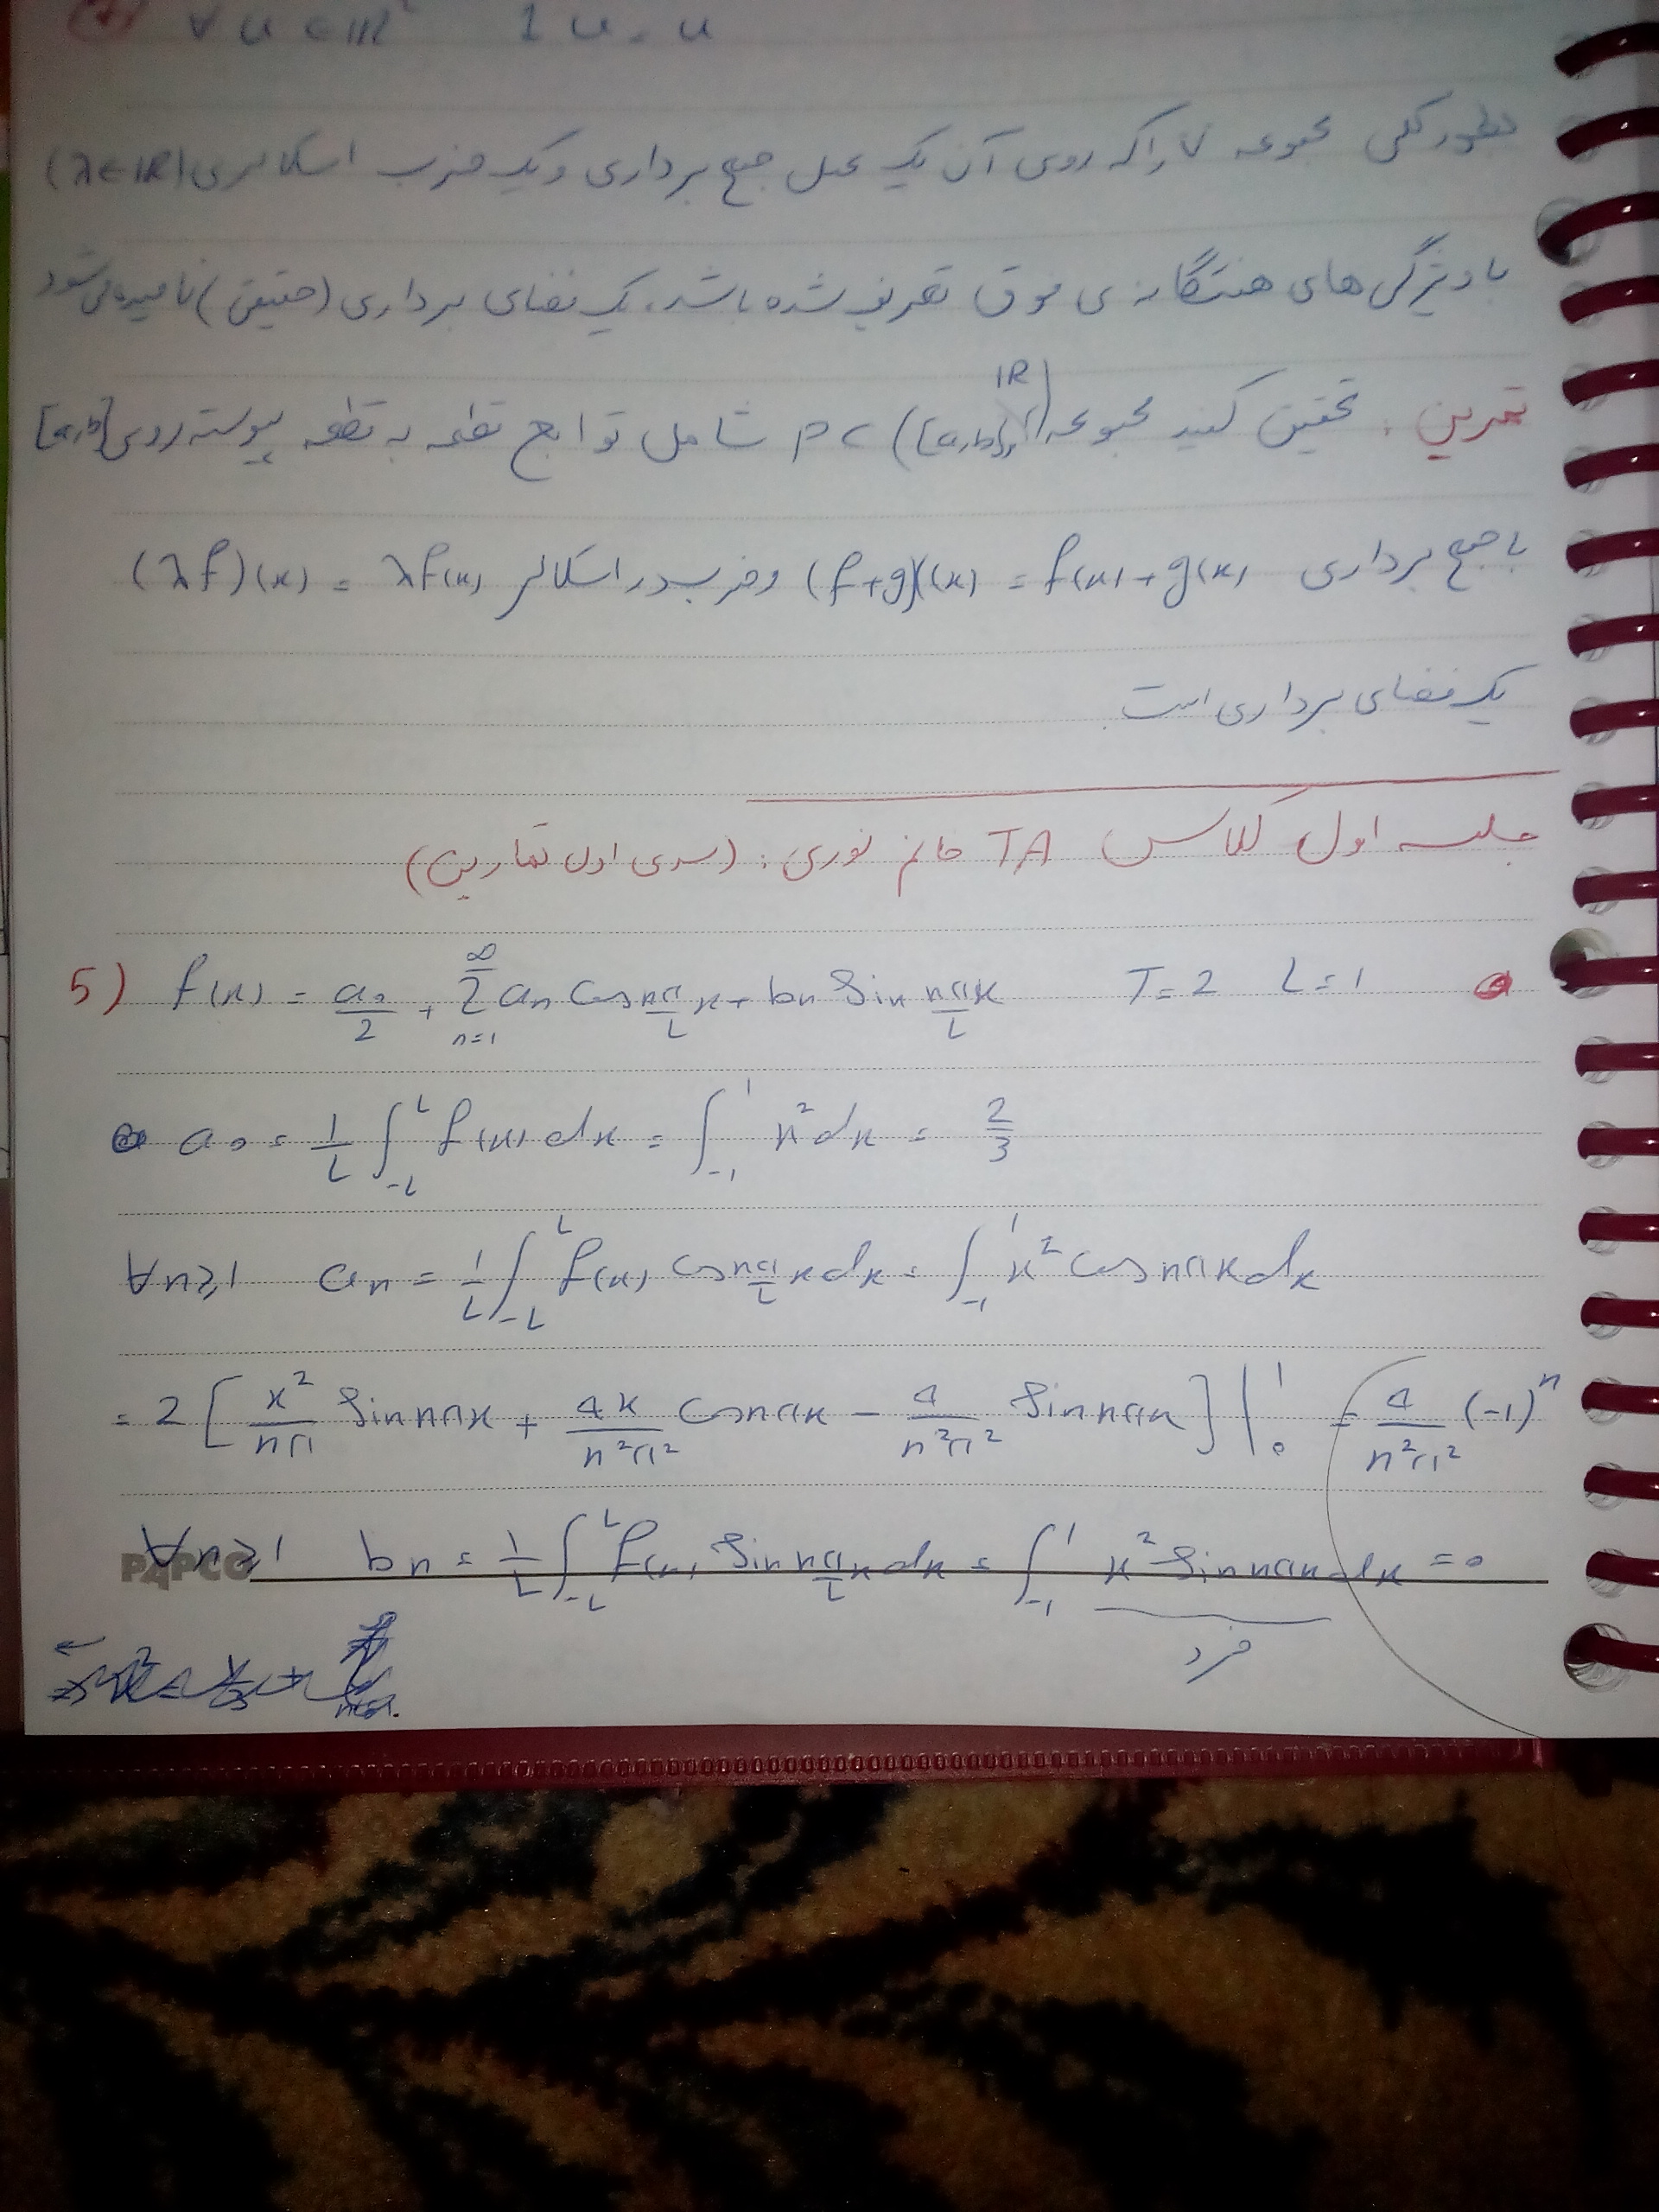 ∀ u ∈ IR² 1 u = u
بطور کلی مجموعه V را که روی آن یک عمل جمع برداری و یک ضرب اسکالری (λ∈IR)
با ویژگی های هشتگانه ی فوق تعریف شده باشد، یک فضای برداری (حقیقی) نامیده می شود
تمرین: تحقیق کنید مجموعه PC([a,b], IR) شامل توابع قطعه به قطعه پیوسته روی [a,b]
با جمع برداری (f+g)(x) = f(x) + g(x) و ضرب در اسکالر (λf)(x) = λf(x)
یک فضای برداری است.
جلسه اول کلاس TA خانم نوری: (سری اول تمارین)
5) f(x) = a₀/2 + Σ_{n=1}^{∞} aₙ Cos nπ/L x + bₙ Sin nπx/L T=2 L=1
a₀ = 1/L ∫_{-L}^{L} f(x) dx = ∫_{-1}^{1} x² dx = 2/3
∀n≥1 aₙ = 1/L ∫_{-L}^{L} f(x) Cos nπ/L x dx = ∫_{-1}^{1} x² Cos nπx dx
= 2 [ x²/nπ Sin nπx + 4x/n²π² Cos nπx − 4/n³π² Sin nπx ] |₀¹ = 4/n²π² (-1)ⁿ
∀n≥1 bₙ = 1/L ∫_{-L}^{L} f(x) Sin nπ/L x dx = ∫_{-1}^{1} x² Sin nπx dx = 0
PAPCO
فرد